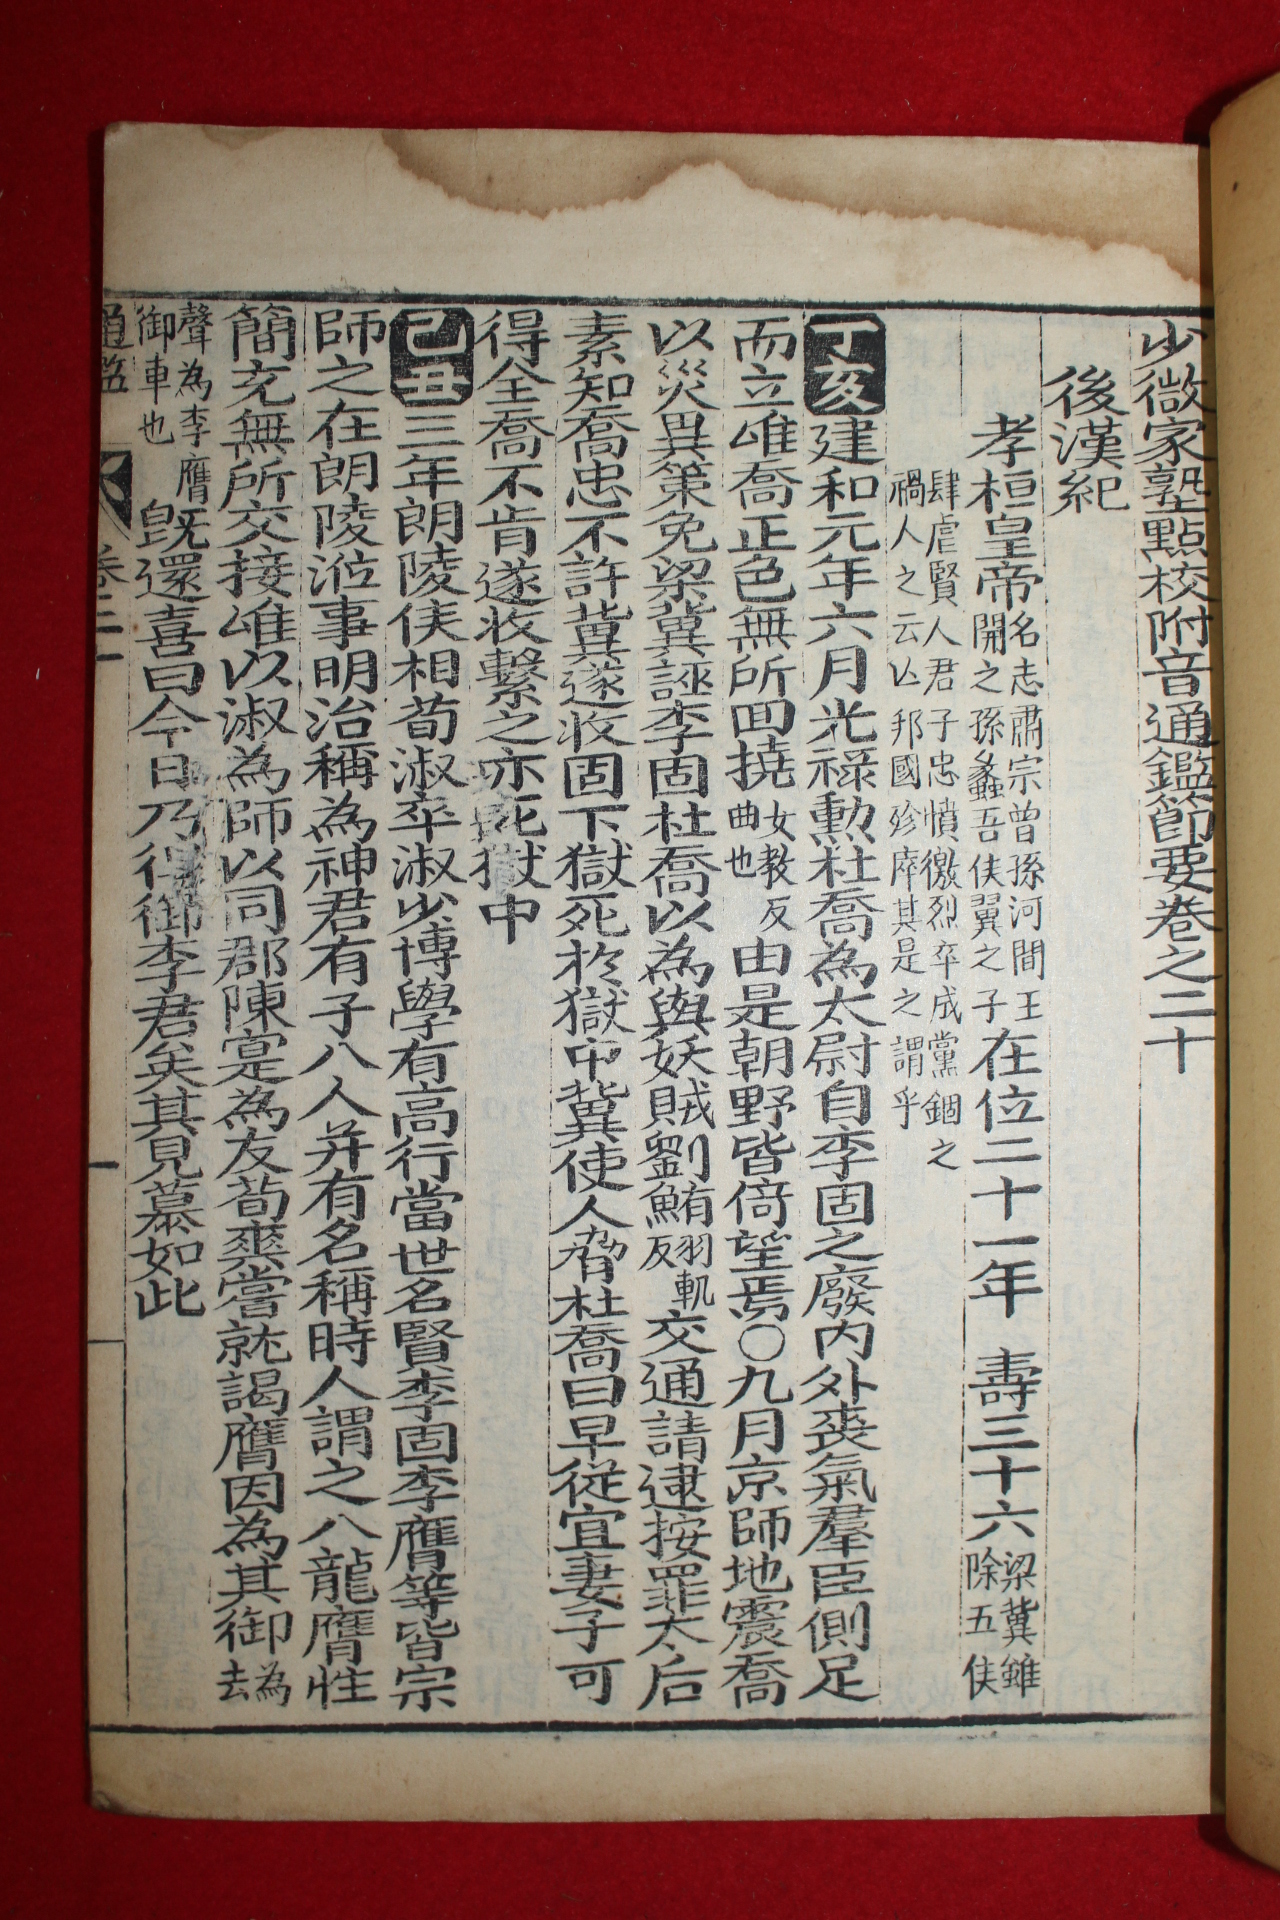 少微家塾點校附音通鑑節要卷之二十
後漢紀
孝桓皇帝名志肅宗曾孫河間王開之孫蠡吾侯翼之子在位二十一年壽三十六梁冀雖除五侯
肆虐賢人君子忠憤激烈卒成黨錮之禍人之云亾邦國殄瘁其是之謂乎
丁亥建和元年六月光祿勳杜喬為太尉自李固之廢內外喪氣羣臣側足
而立唯喬正色無所回撓女教反曲也由是朝野皆倚望焉〇九月京師地震喬
以災異策免梁冀誣李固杜喬以為與妖賊劉鮪羽軌反交通請逮按罪太后
素知喬忠不許冀遂收固下獄死於獄中冀使人脅杜喬曰早從宜妻子可
得全喬不肯遂收繫之亦死獄中
己丑三年朗陵侯相荀淑卒淑少博學有高行當世名賢李固李膺等皆宗
師之在朗陵涖事明治稱為神君有子八人并有名稱時人謂之八龍膺性
簡亢無所交接唯以淑為師以同郡陳寔為友荀爽嘗就謁膺因為其御為去
聲為李膺御車也既還喜曰今日乃得御李君矣其見慕如此
通鑑 卷二